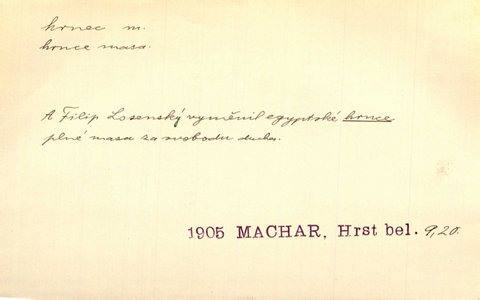 hrnec m.
hrnce masa.
A Filip Losenský vyměnil egyptské hrnce
plné masa za svobodu ducha.
1905 MACHAR, Hrst bel. 9,20.